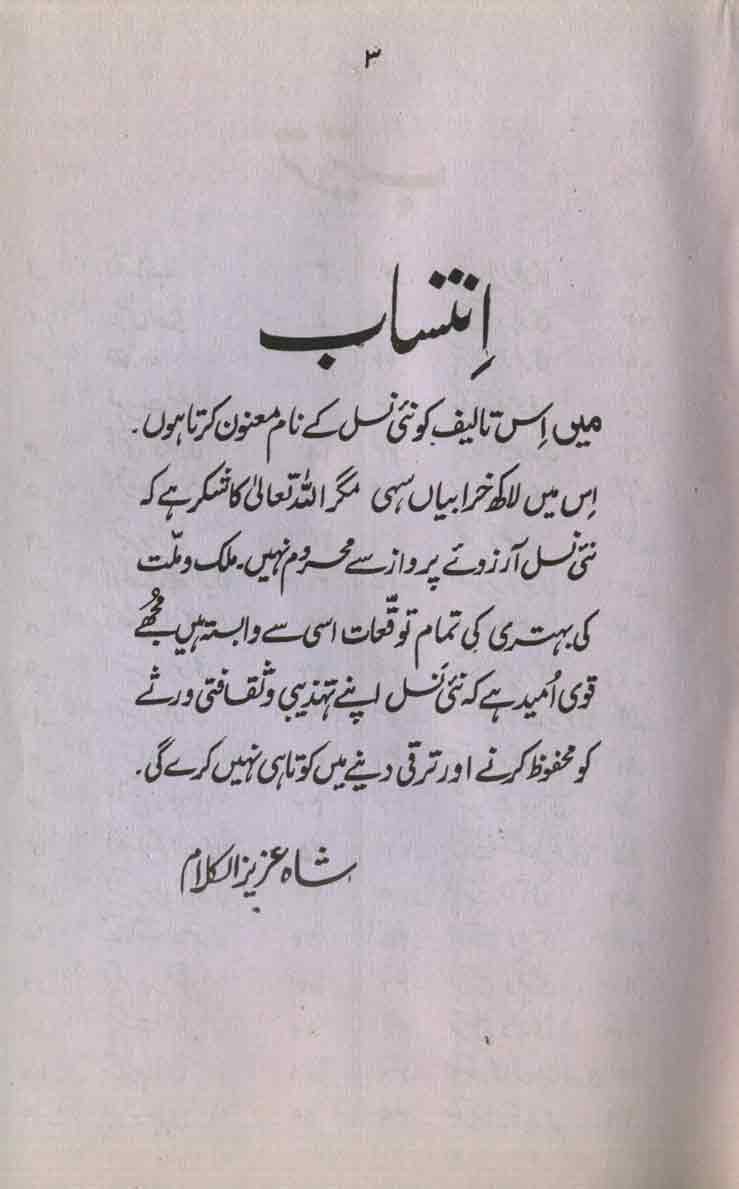 ۳
اِنتساب
میں اِس تالیف کو نئی نسل کے نام معنون کرتا ہوں۔
اِس میں لاکھ خرابیاں سہی مگر اللہ تعالیٰ کا شکر ہے کہ
نئی نسل آرزوئے پرواز سے محروم نہیں۔ ملک و ملّت
کی بہتری کی تمام توقّعات اسی سے وابستہ ہیں مجُھے
قوی اُمید ہے کہ نئی نَسل اپنے تہذیبی و ثقافتی ورثے
کو محفوظ کرنے اور ترقی دینے میں کوتاہی نہیں کرے گی۔
شاہ عزیز الکلام